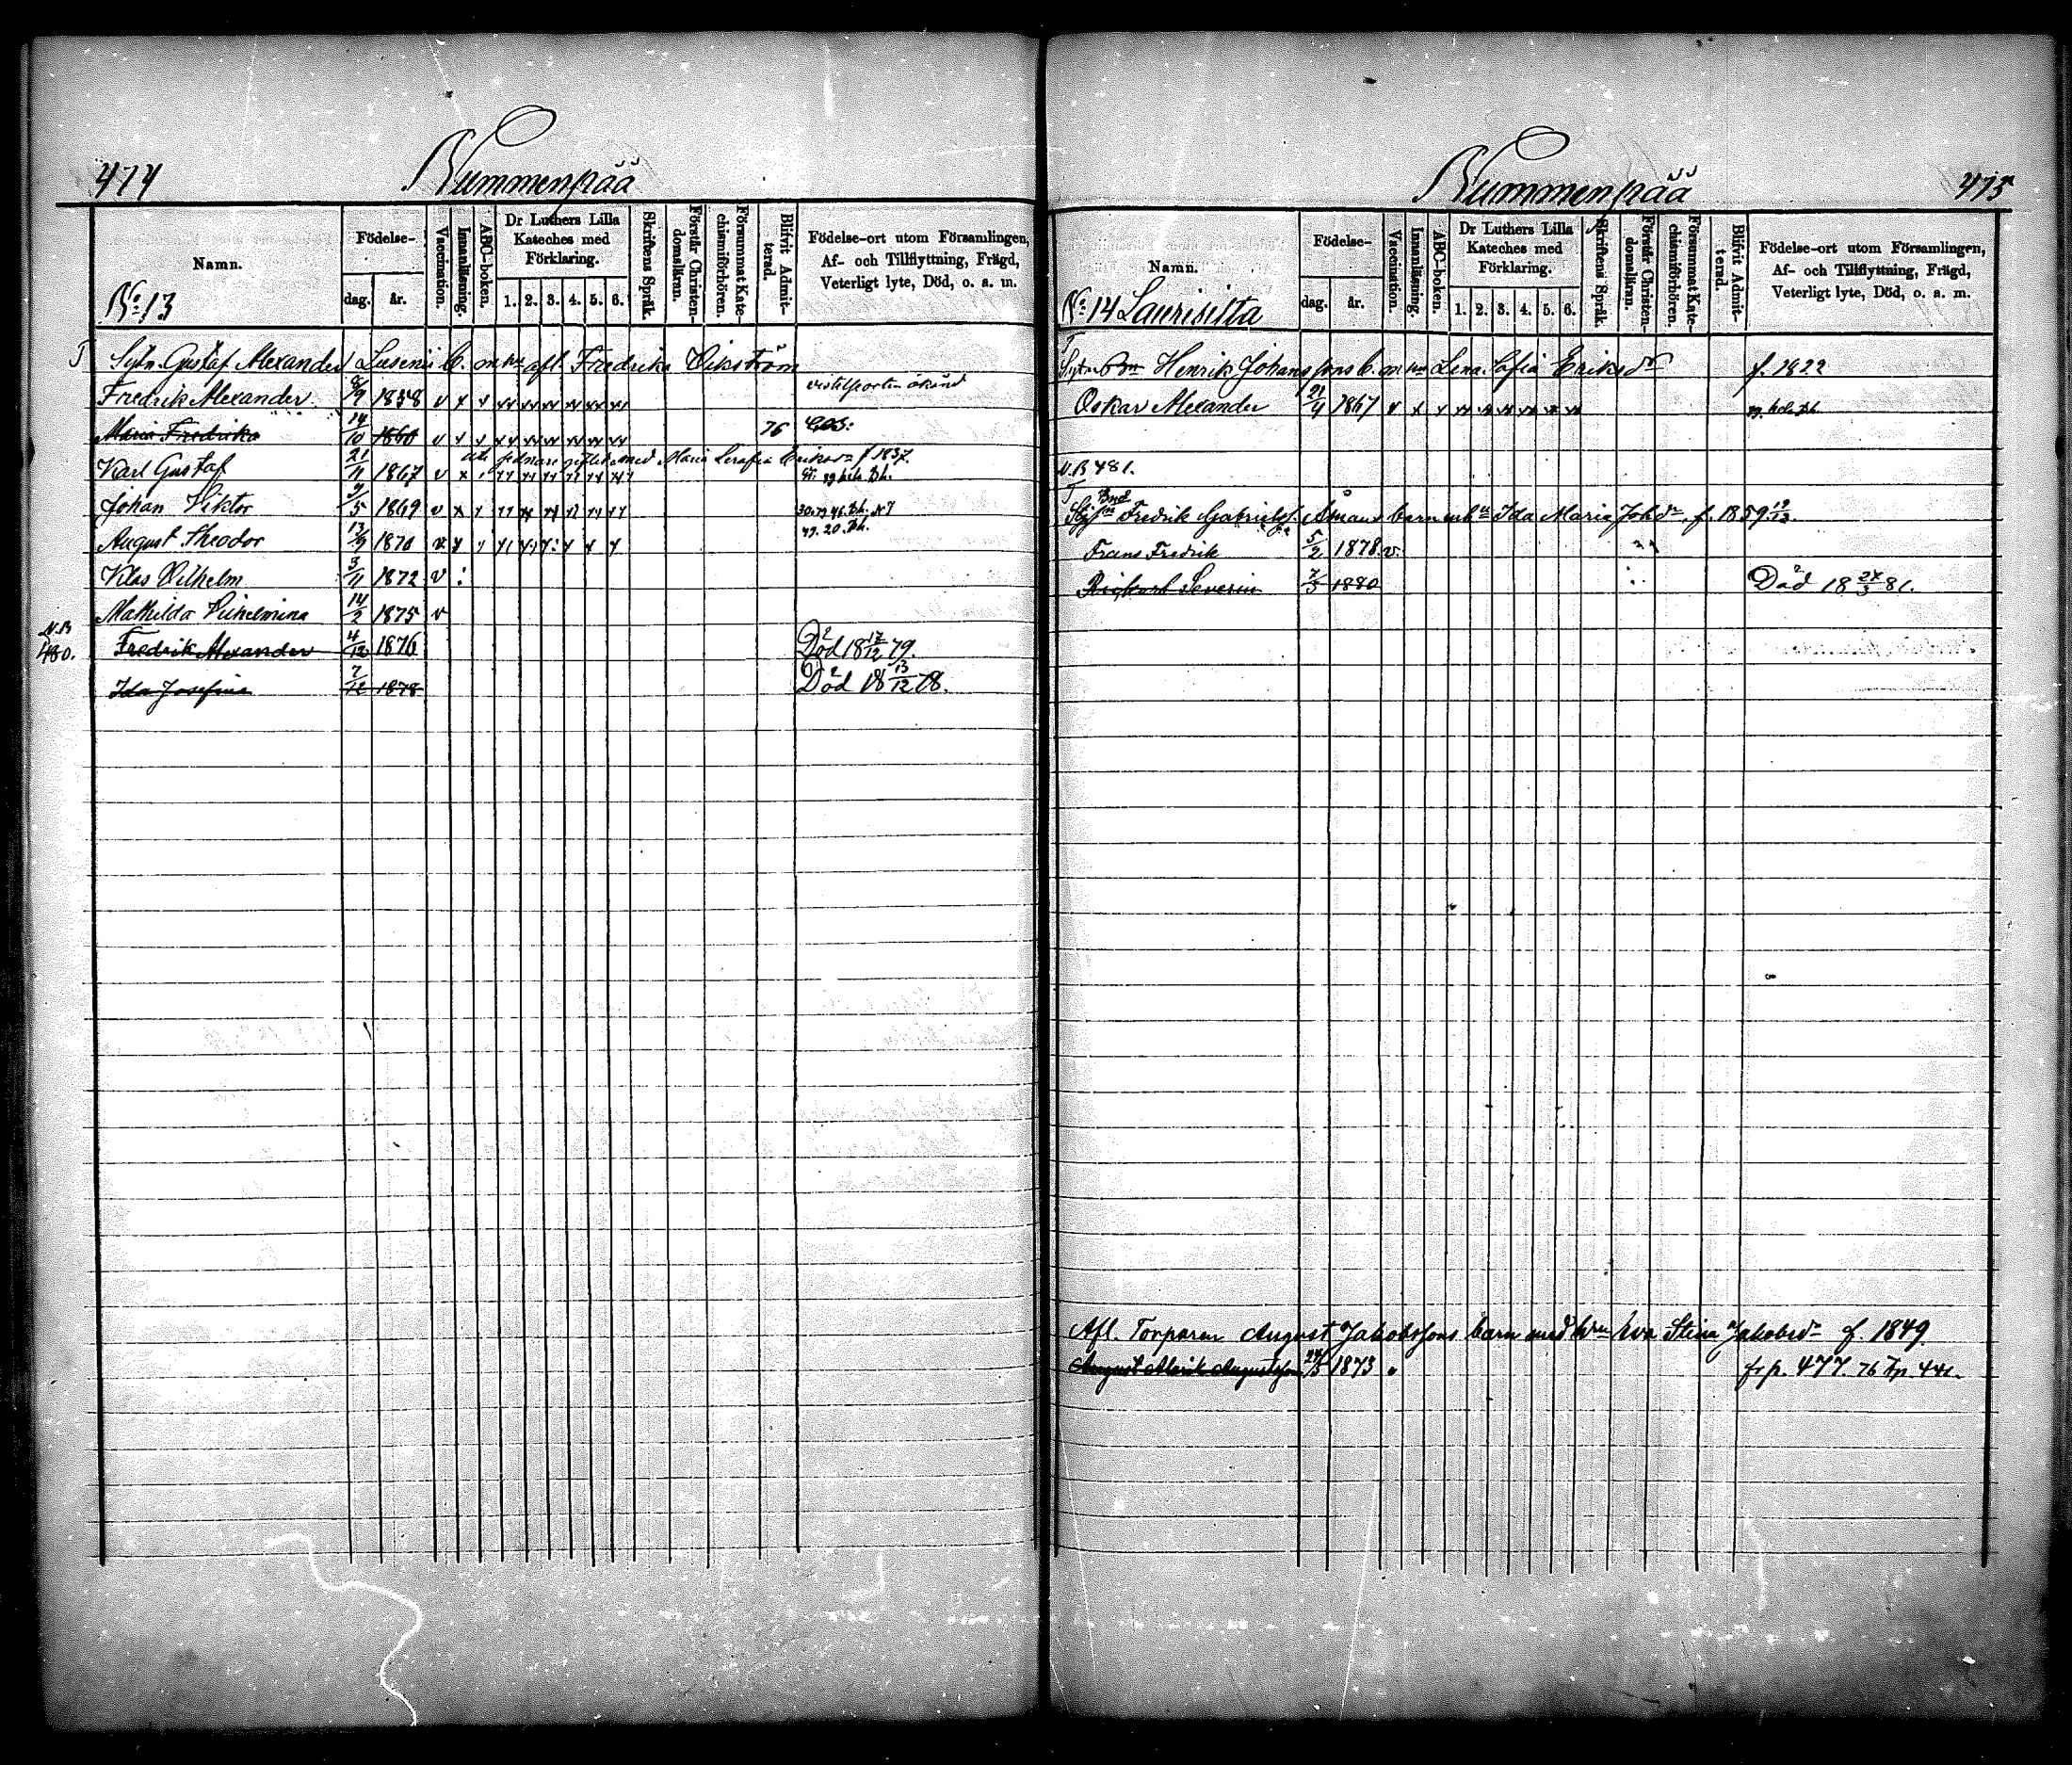 474
Nummenpää
Namn.
No 13
Födelse-
dag.
år.
Vaccination.
Innanläsning.
ABC-boken.
Dr Luthers Lilla
Kateches med
Förklaring.
1. 2. 3. 4. 5. 6.
Skriftens Språk.
Förstår Christen-
domsläran.
Försummat Kate-
chismiförhören.
Blifvit Admit-
terad.
Födelse-ort utom Församlingen,
Af- och Tillflyttning, Frägd,
Veterligt lyte, Död, o. a. m.
T Sytn. Gustaf Alexander Lusenii b. m hu afl. Fredrika Vikström
Fredrik Alexander 8/9 1858 v x x
Maria Fredrika 14/10 1860 v x x 76
gift med Maria Serafia Eriksdr f 1837.
Karl Gustaf 21/11 1867 v x
Johan Viktor 9/5 1869 v x x
August Theodor 13/9 1870 x x 49. 20. Bh.
Klas Vilhelm 3/11 1872 v :
Mathilda Vilhelmina 14/2 1875 v
N.B 480. Fredrik Alexander 4/12 1876 Död 18 12/12 79.
Ida Josefina 7/12 1878 Död 18 13/12 78.
Nummenpää
475
Namn.
No 14 Laurisilta
Födelse-
dag.
år.
Vaccination.
Innanläsning.
ABC-boken.
Dr Luthers Lilla
Kateches med
Förklaring.
1. 2. 3. 4. 5. 6.
Skriftens Språk.
Förstår Christen-
domsläran.
Försummat Kate-
chismiförhören.
Blifvit Admit-
terad.
Födelse-ort utom Församlingen,
Af- och Tillflyttning, Frägd,
Veterligt lyte, Död, o. a. m.
T
Henrik Johanssons b. m hu Lena Sofia Eriksdr f. 1822
Oskar Alexander 21/4 1867 v x x
N.B 481.
T
Fredrik Barn m hu Ida Maria Johdr f. 1859 12/13.
Frans Fredrik 5/2 1878 v.
Rickard Severin 7/5 1880 Död 18 27/3 81.
Afl. Torparen August Jakobssons barn med hu Eva Stina Jakobsdr f. 1849
August Alarik Augustsson 24/5 1873 fr p. 477. 76 T p. 441.